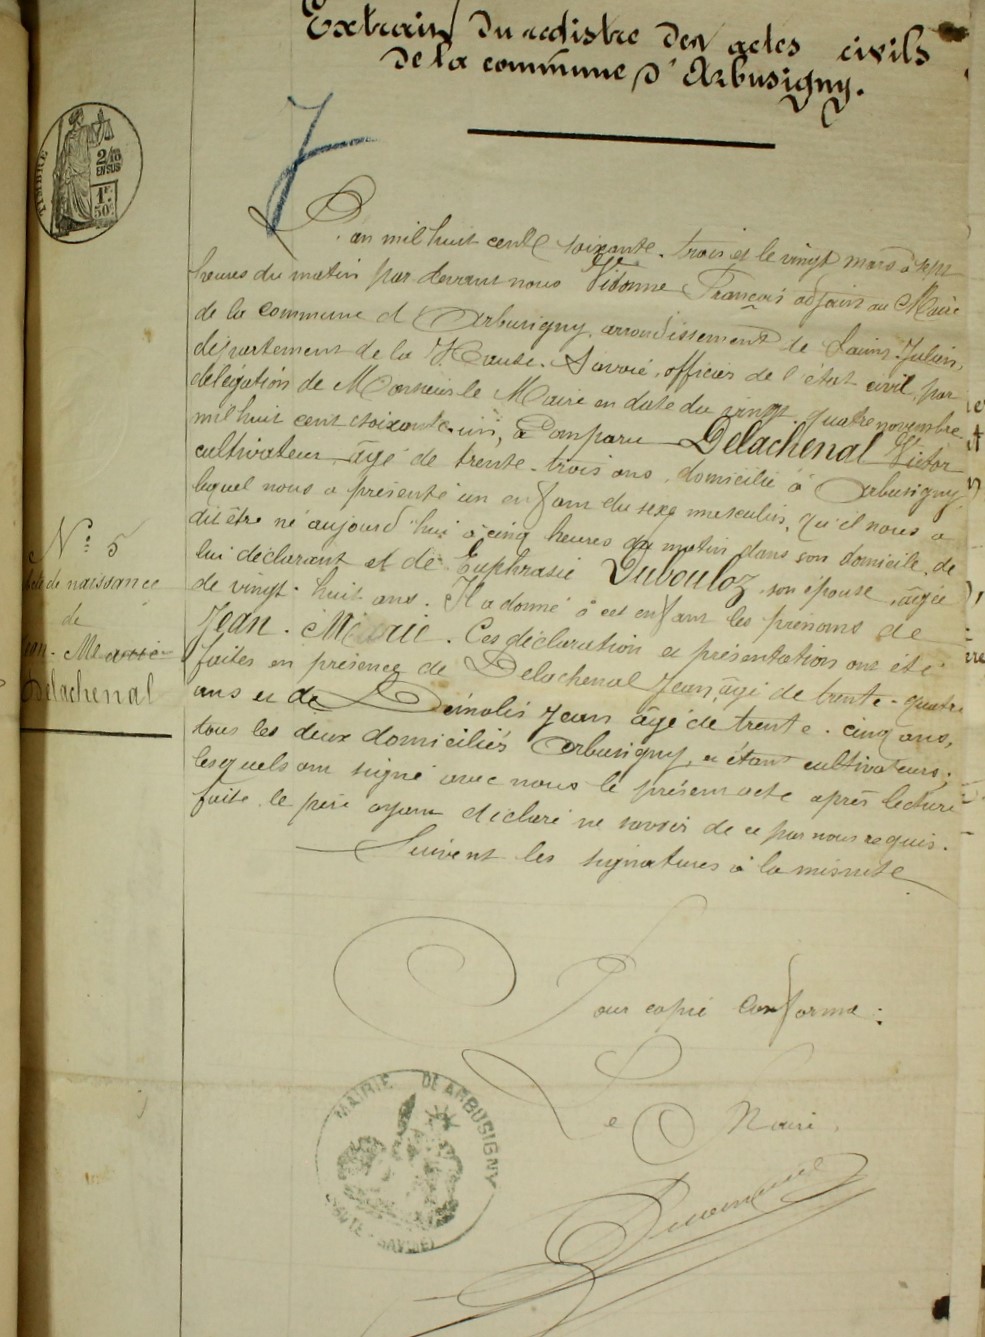 Extrait du registre des actes civils
de la commune d'Arbusigny.
7
TIMBRE
2/10
EN SUS
1F
50c
L'an mil huit cent soixante-trois et le vingt mars à sept
heures du matin par devant nous Vidonne François adjoint au Maire
de la commune d'Arbusigny, arrondissement de Saint-Julien,
département de la Haute-Savoie, officier de l'état civil, par
délégation de Monsieur le Maire en date du vingt-quatre novembre
mil huit cent soixante-un, a comparu Delachenal Victor
cultivateur âgé de trente-trois ans, domicilié à Arbusigny,
lequel nous a présenté un enfant du sexe masculin, qu'il nous a
dit être né aujourd'hui à cinq heures du matin dans son domicile, de
lui déclarant et de Euphrasie Dubouloz, son épouse, âgée
de vingt-huit ans. Il a donné à cet enfant les prénoms de
Jean-Marie. Ces déclaration et présentation ont été
faites en présence de Delachenal Jean, âgé de trente-quatre
ans et de Jean âgé de trente-cinq ans,
tous les deux domiciliés Arbusigny, et étant cultivateurs;
lesquels ont signé avec nous le présent acte après lecture
faite, le père ayant déclaré ne savoir de ce par nous requis.
Suivent les signatures à la minute
N° 5
de naissance
de
Jean-Marie
Delachenal
Pour copie conforme:
Le Maire.
MAIRIE DE ARBUSIGNY
(HAUTE-SAVOIE)